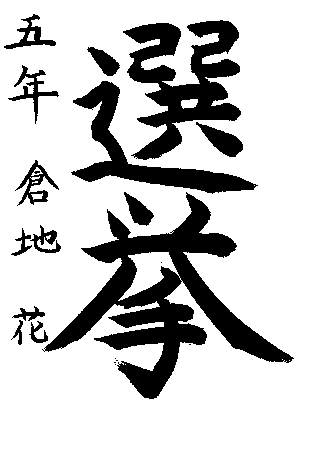 選挙
五年 倉地 花